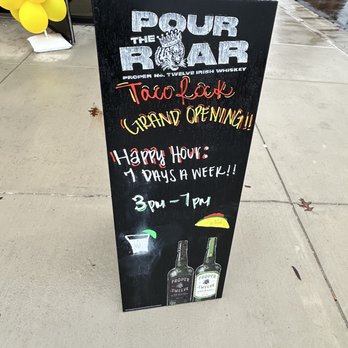 POUR
THE
ROAR
PROPER No. TWELVE IRISH WHISKEY
Taco Rock
GRAND OPENING!!
Happy Hour:
7 DAYS A WEEK!!
3PM - 7PM
PROPER
TWELVE
PROPER
TWELVE